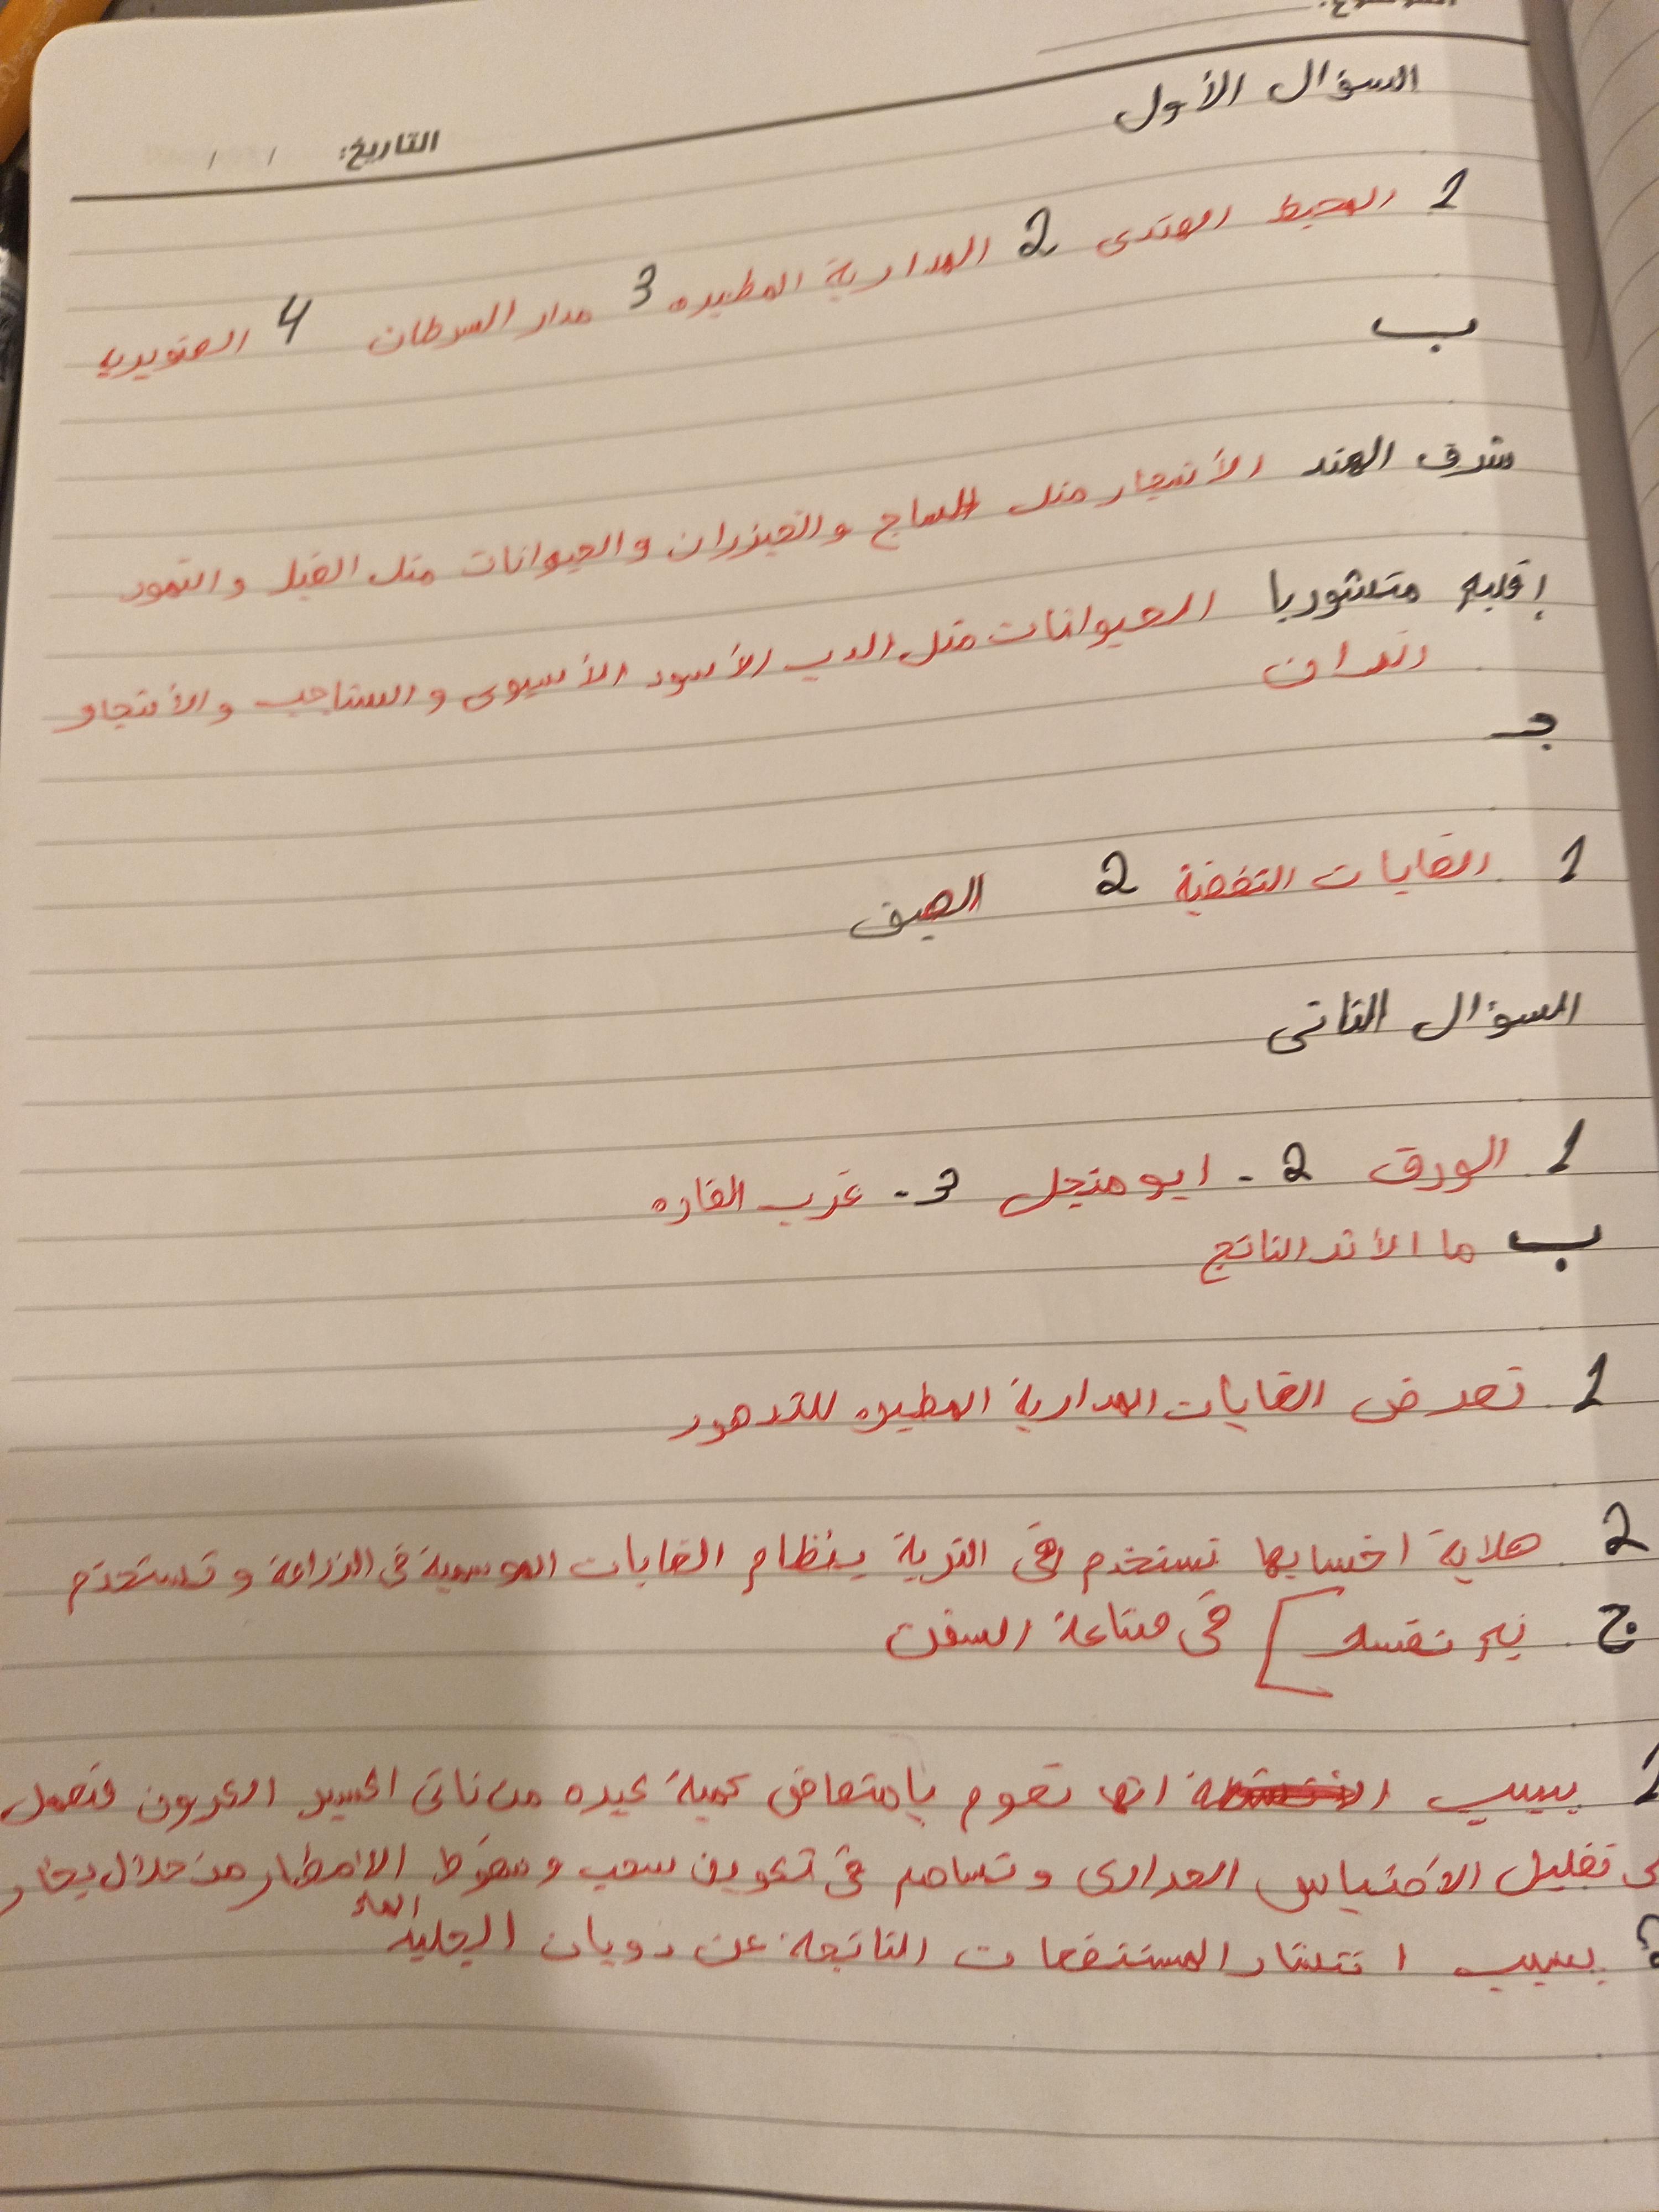 الموضوع:
التاريخ: / /
السؤال الأول
1 المحيط الهندى 2 المدارية المطيره 3 مدار السرطان 4 الصنوبريه
ب
شرق الهند الأشجار مثل الساج والخيزران والحيوانات مثل الفيل والنمور
إقليم منشوريا الحيوانات مثل الدب الأسود الأسيوى والسناجب والأشجار
الزان
جـ
1 الغابات النفضية 2 الصيف
السؤال الثانى
1 الورق 2 - ابو منجل 3 - غرب القاره
ب ما الأثر الناتج
1 تعرض الغابات المدارية المطيره للتدهور
2 صلابة اخشابها تستخدم فى التربة بنظام الغابات الموسمية فى الزراعة وتستخدم
فى صناعة السفن
ج بم تفسر
1 بسبب انها تقوم بامتصاص كمية كبيره من ثانى اكسيد الكربون فتعمل
تقليل الاحتباس الحرارى وتساهم فى تكوين سحب وسقوط الامطار من خلال بخار
الماء
2 بسبب انتشار المستنقعات الناتجة عن ذوبان الجليد